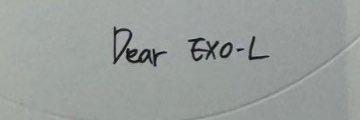 Dear EXO-L